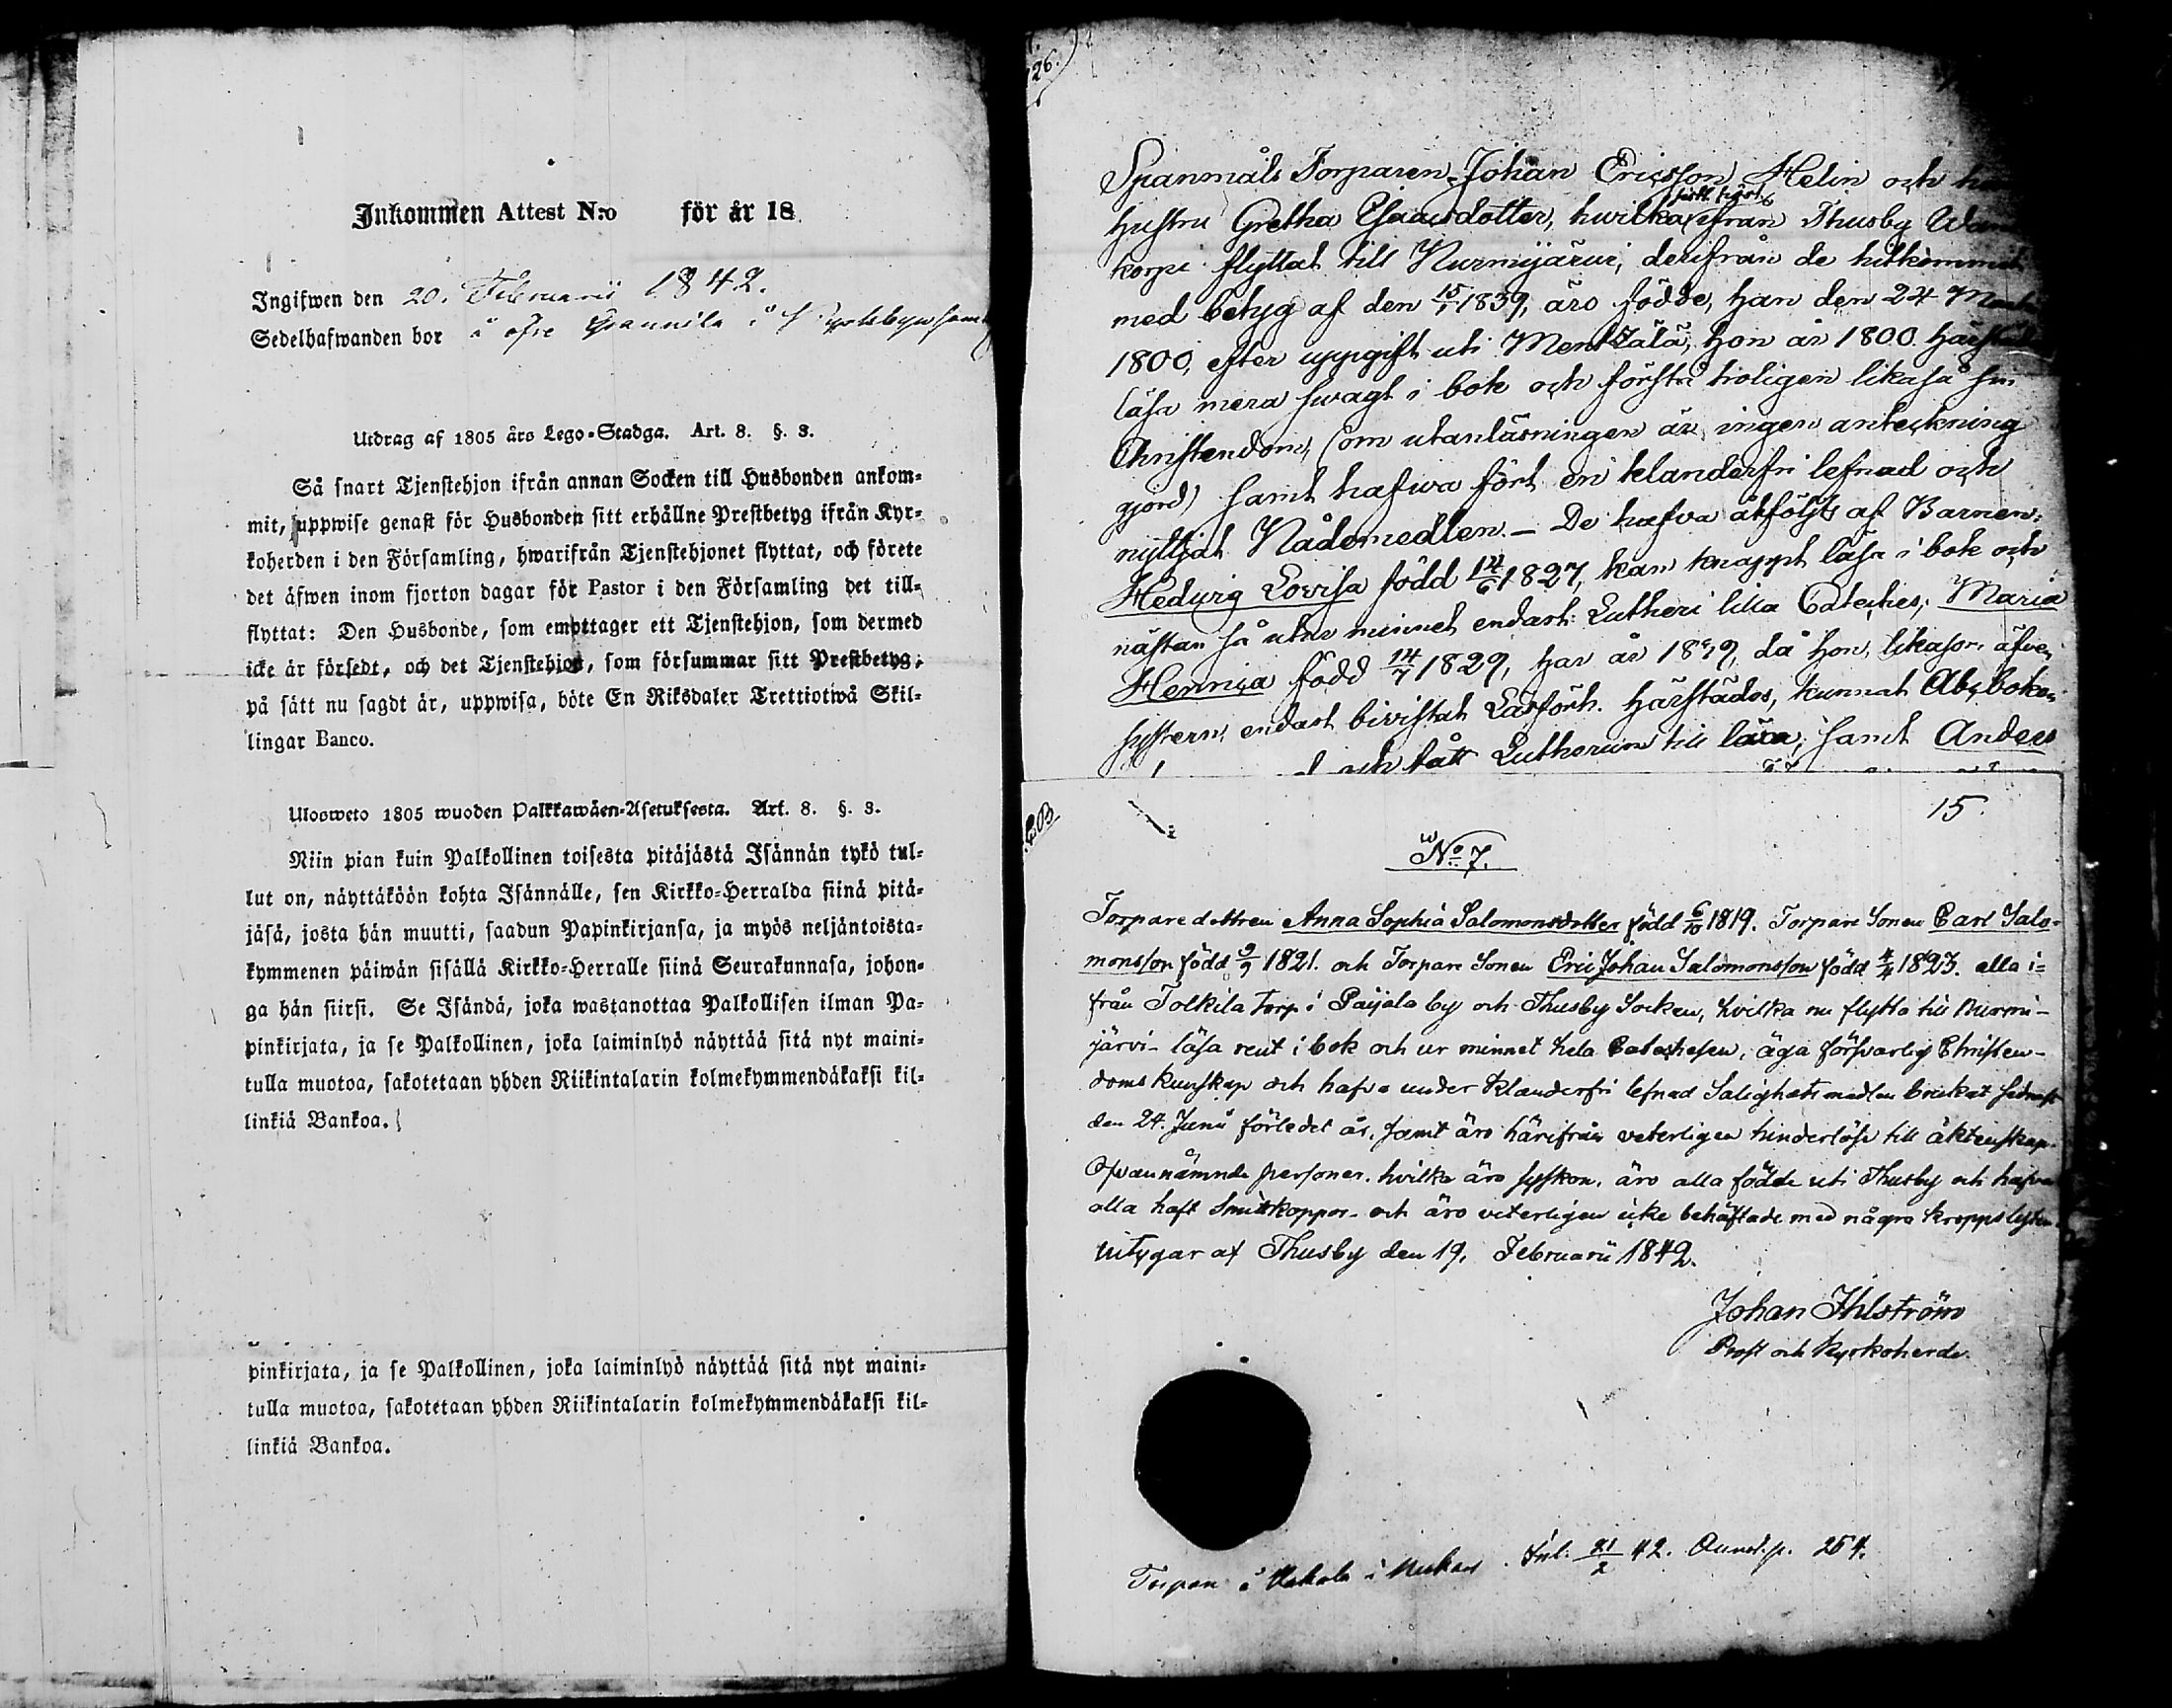 Inkommen Attest N:o för år 18
Ingifwen den 20. Februarii 1842.
Sedelhafwanden bor å öfre
Utdrag af 1805 års Lego-Stadga. Art. 8. §. 3.
Så snart Tjenstehjon ifrån annan Socken till Husbonden ankom-
mit, uppwise genast för Husbonden sitt erhållne Prestbetyg ifrån Kyr-
koherden i den Församling, hwarifrån Tjenstehjonet flyttat, och förete
det äfwen inom fjorton dagar för Pastor i den Församling det till-
flyttat: Den Husbonde, som emottager ett Tjenstehjon, som dermed
icke är försedt, och det Tjenstehjon, som försummar sitt Prestbetyg,
på sätt nu sagdt är, uppwisa, böte En Riksdaler Trettiotwå Skil-
lingar Banco.
Ulosweto 1805 wuoden Palkkawäen-Asetuksesta. Art. 8. §. 3.
Niin pian kuin Palkollinen toisesta pitäjästä Isännän tykö tul-
lut on, näyttäköön kohta Isännälle, sen Kirkko-Herralda siinä pitä-
jäsä, josta hän muutti, saadun Papinkirjansa, ja myös neljäntoista-
kymmenen päiwän sisällä Kirkko-Herralle siinä Seurakunnasa, johon-
ga hän siirsi. Se Isändä, joka wastanottaa Palkollisen ilman Pa-
pinkirjata, ja se Palkollinen, joka laiminlyö näyttää sitä nyt maini-
tulla muotoa, sakotetaan yhden Riikintalarin kolmekymmendäkaksi kil-
linkiä Bankoa.
pinkirjata, ja se Palkollinen, joka laiminlyö näyttää sitä nyt maini-
tulla muotoa, sakotetaan yhden Riikintalarin kolmekymmendäkaksi kil-
linkiä Bankoa.
26.
Spanmåls Torparen Johan Ericsson Helin och
hustru Gretha Esaiasdotter, hwilka ifrån Thusby
korpi flyttat till Nurmijärwi, derifrån de hitkommit
med betyg af den 15/1 1839, äro födde, han den 24
1800, efter uppgift uti Mentzälä, hon år 1800 härstädes
läsa mera swagt i bok och förstå troligen likaså sin
Christendom, (om utanläsningen är ingen anteckning
gjord) samt hafwa fört en klanderfri lefnad och
nyttjat Nådemedlen. – De hafva åtföljts af Barnen:
Hedvig Lovisa född 14/6 1827, kan knappt läsa i bok och
nästan så utur minnet endast Lutheri lilla Cateches; Maria
Hennica född 14/7 1829, har år 1839, då hon, likasom äfven
systern, endast bivistat Läsförh. härstädes, kunnat Abcboken
och fått Lutherum till läxa; samt Anders
15.
No 7.
Torparedottren Anna Sophia Salomonsdotter född 6/10 1819. Torpare Sonen Carl Salo-
monsson född 9/9 1821. och Torpare Sonen Eric Johan Salomonsson född 4/4 1823. alla i-
från Tolkila torp i Paijala by och Thusby Socken, hvilka nu flytta till Nurmi-
järvi – läsa rent i bok och ur minnet hela Catechesen, äga försvarlig Christen-
doms kunskap och hafva under klanderfri lefnad Salighetsmedlen brukat sednast
den 24. Junii förledet år. samt äro härifrån veterligen hinderlöse till äktenskap.
Ofvannämnde personer. hvilka äro syskon. äro alla födde uti Thusby och hafva
alla haft Smittkoppor – och äro veterligen icke behäftade med några kroppslyten.
Vitygar af Thusby den 19. Februarii 1842.
Johan Ihlström
Prost och Kyrkoherde.
Torpare å i Inl. 21/2 42. p. 254.